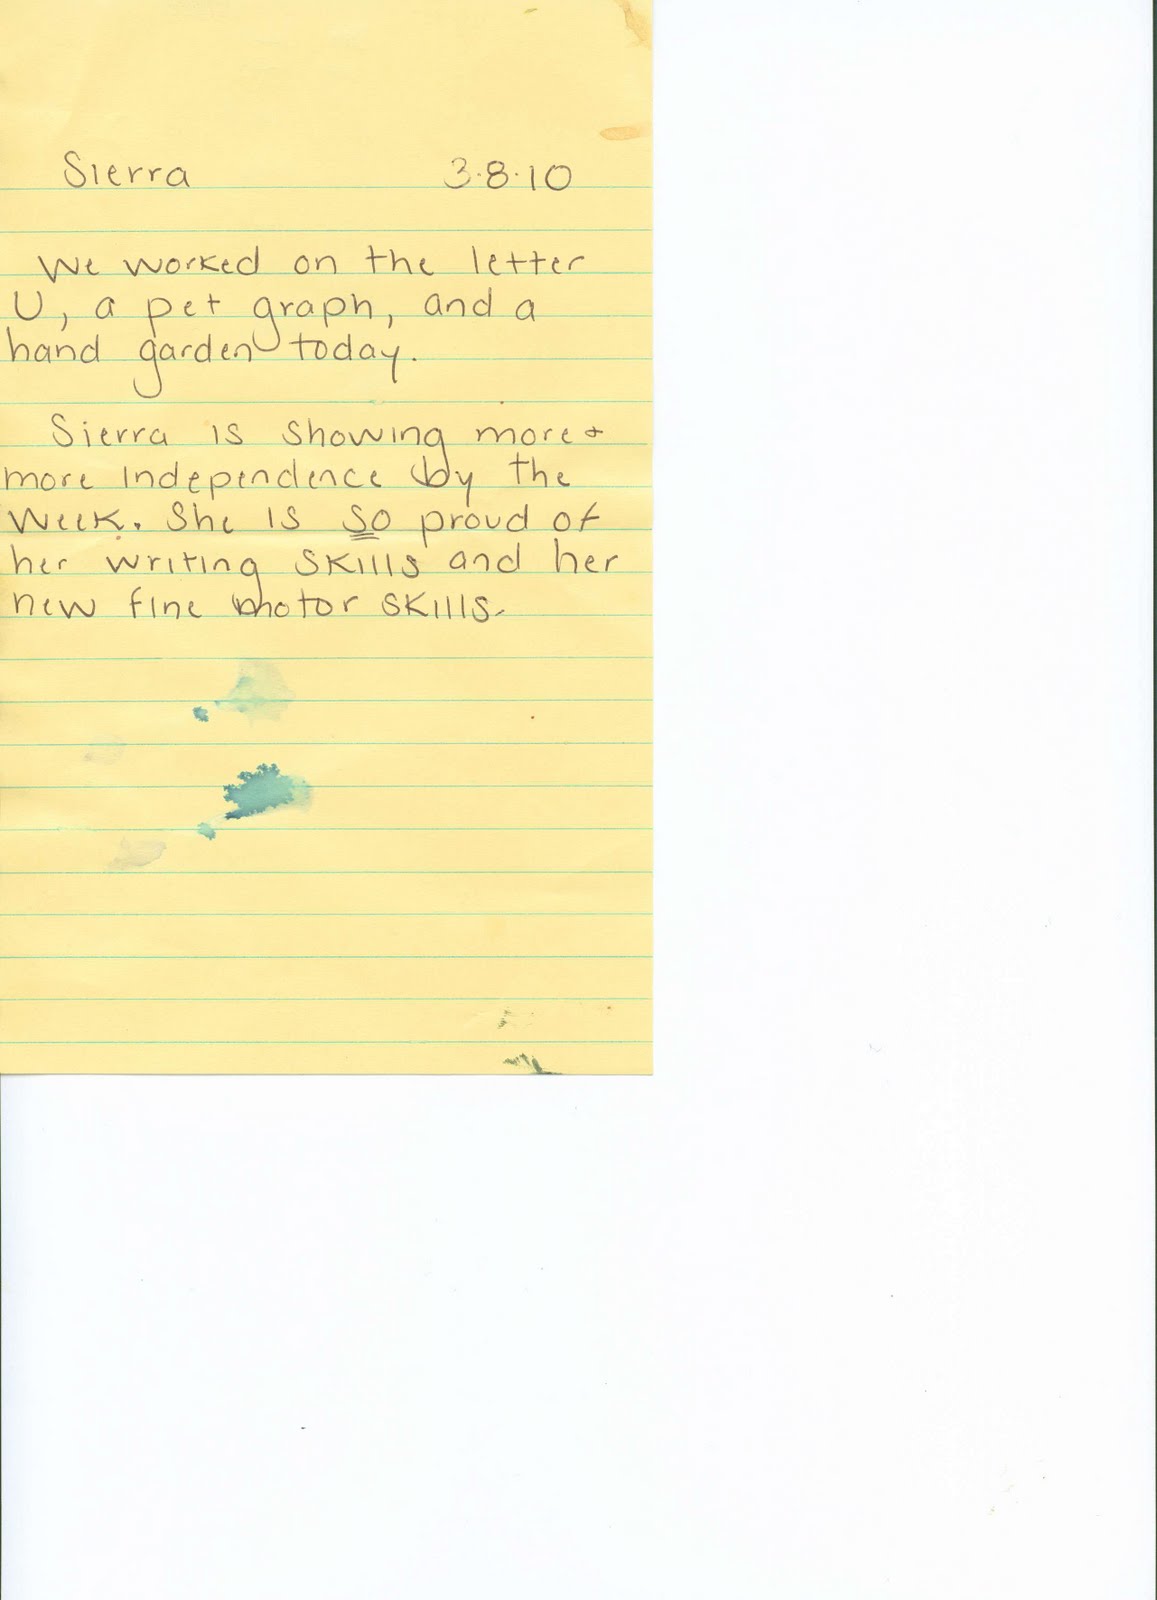 Sierra 3.8.10
We worked on the letter
U, a pet graph, and a
hand garden today.
Sierra is showing more +
more independence by the
week. She is so proud of
her writing skills and her
new fine motor skills.